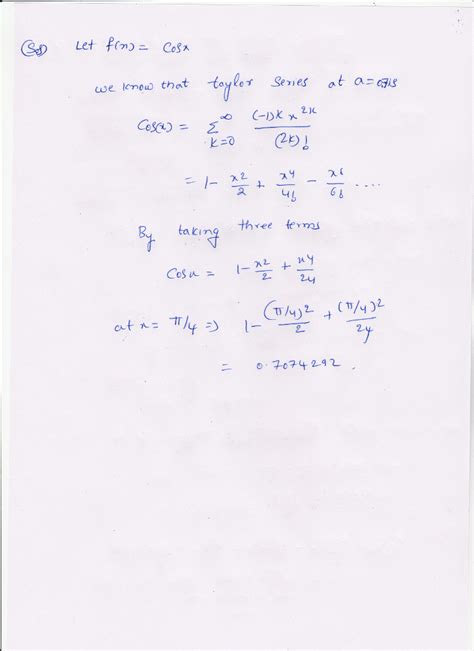 (Sol) Let f(x) = Cosx
we know that taylor series at a=0 is
Cos(x) = Σ_{k=0}^{∞} (-1)^k x^{2k} / (2k)!
= 1 - x^2/2 + x^4/4! - x^6/6! ....
By taking three terms
Cosx = 1 - x^2/2 + x^4/24
at x = π/4 => 1 - (π/4)^2/2 + (π/4)^2/24
= 0.7074292.